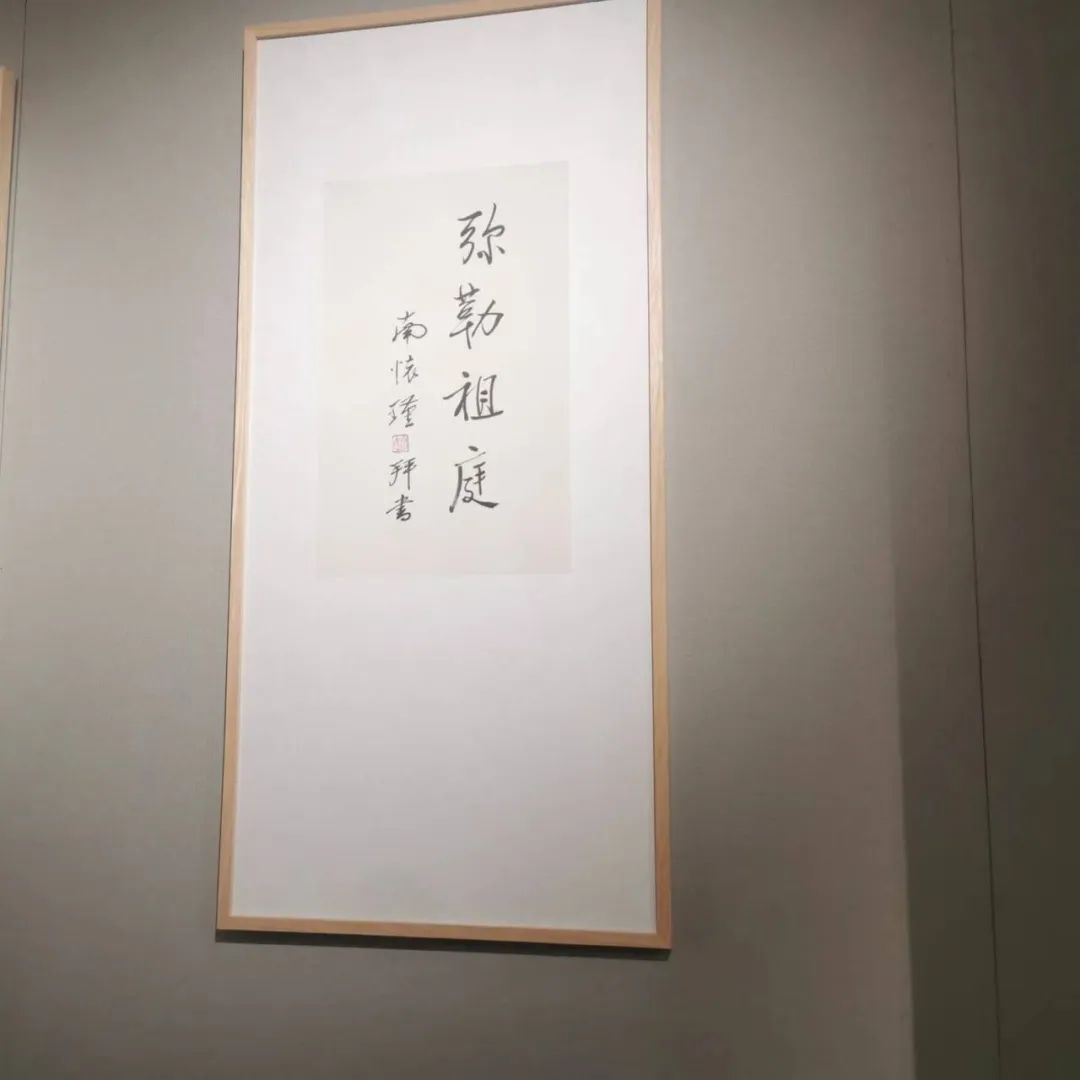 弥勒祖庭
南怀瑾拜书